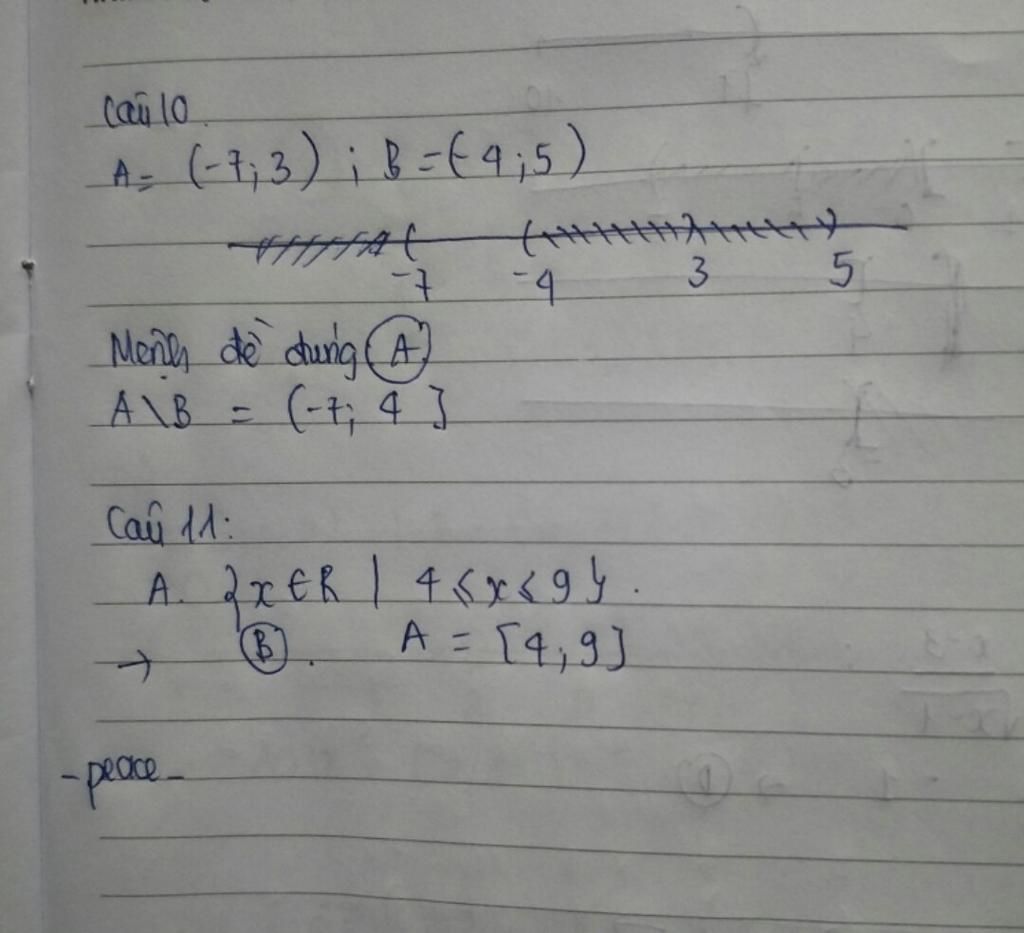 Câu 10.
A = (-7; 3) ; B = (-4; 5)
-7 -4 3 5
Mệnh đề đúng (A)
A \ B = (-7; 4]
Câu 11:
A. {x ∈ R | 4 ≤ x ≤ 9}.
→ (B). A = [4; 9]
- peace -